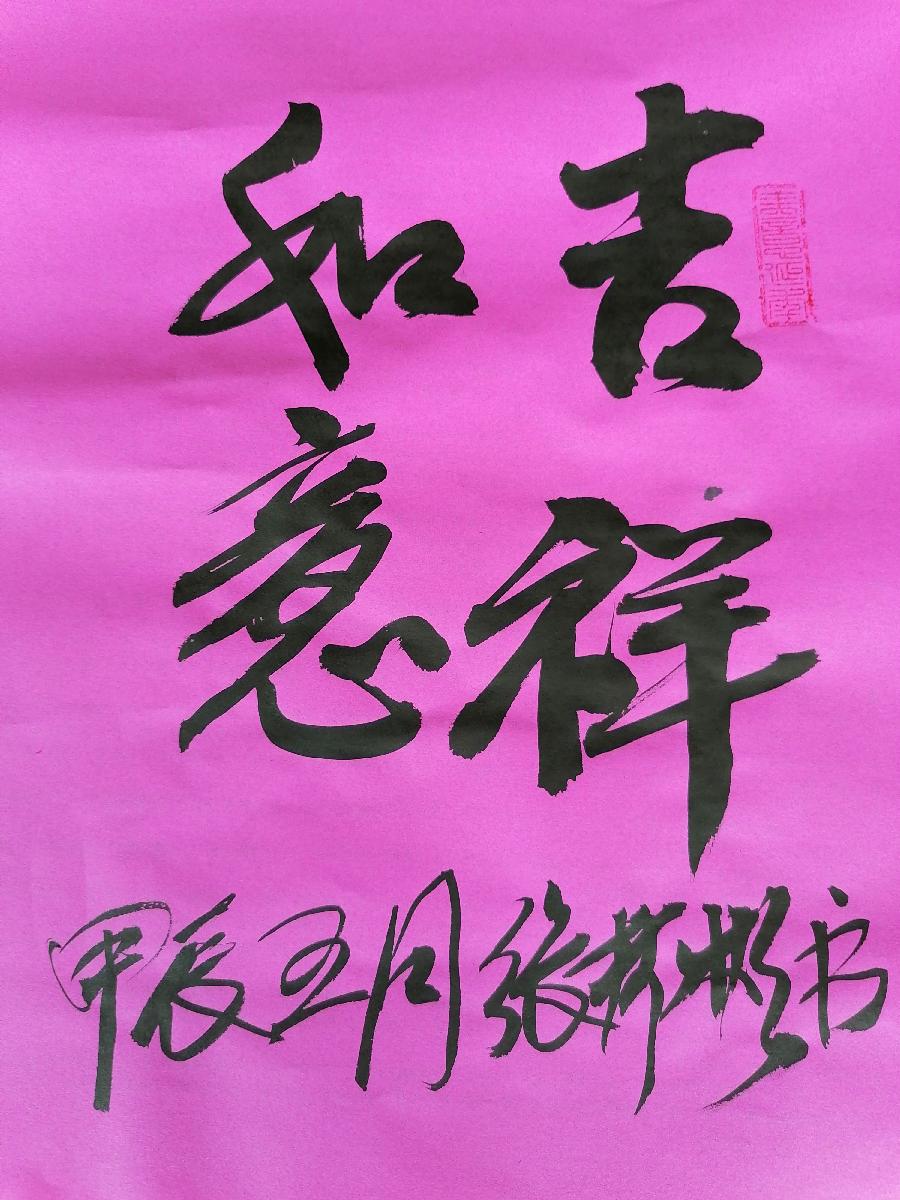 吉祥
如意
甲辰五月张彬书